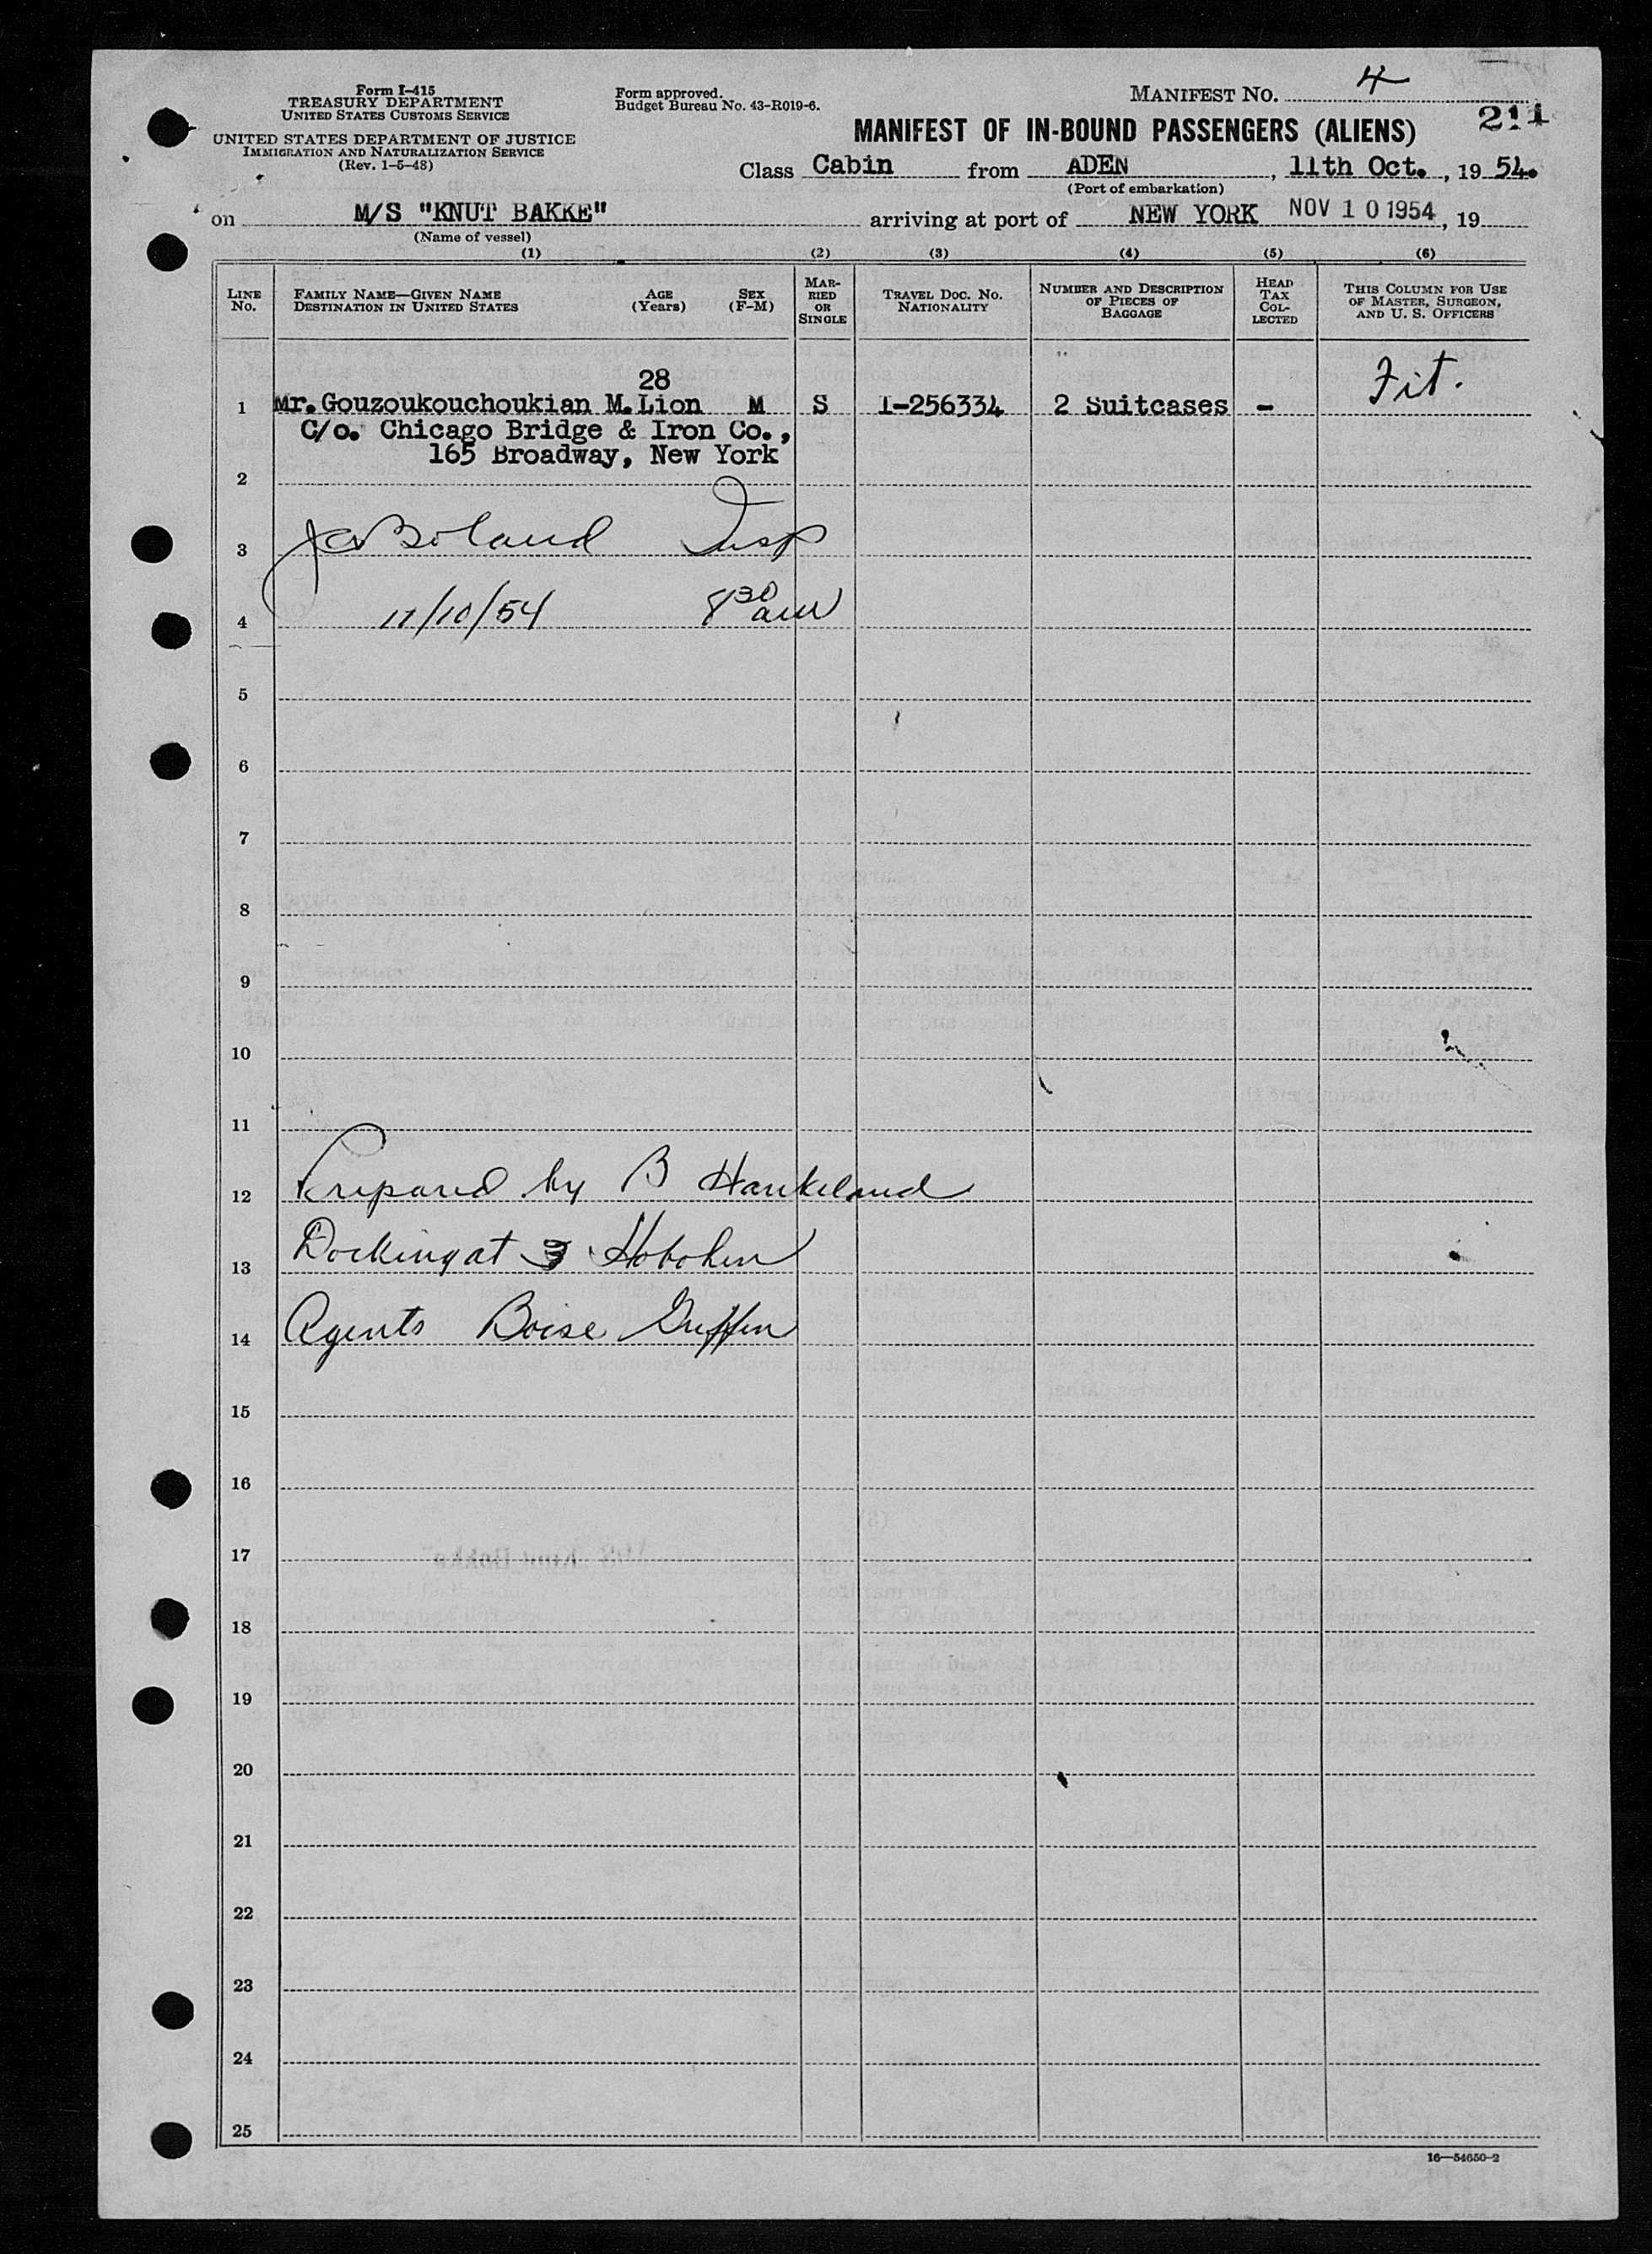 Form I-415
TREASURY DEPARTMENT
UNITED STATES CUSTOMS SERVICE
UNITED STATES DEPARTMENT OF JUSTICE
IMMIGRATION AND NATURALIZATION SERVICE
(Rev. 1-5-48)
Form approved.
Budget Bureau No. 43-R019-6.
MANIFEST NO. 4
211
MANIFEST OF IN-BOUND PASSENGERS (ALIENS)
Class Cabin from ADEN, 11th Oct., 19 54.
(Port of embarkation)
on M/S "KNUT BAKKE" arriving at port of NEW YORK NOV 10 1954, 19
(Name of vessel)
(1) (2) (3) (4) (5) (6)
LINE No.
FAMILY NAME—GIVEN NAME DESTINATION IN UNITED STATES
AGE (Years)
SEX (F-M)
MARRIED OR SINGLE
TRAVEL DOC. NO. NATIONALITY
NUMBER AND DESCRIPTION OF PIECES OF BAGGAGE
HEAD TAX COLLECTED
THIS COLUMN FOR USE OF MASTER, SURGEON, AND U. S. OFFICERS
28
1 Mr. Gouzoukouchoukian M. Lion M S I-256334 2 Suitcases - Fit.
C/o. Chicago Bridge & Iron Co.,
165 Broadway, New York
2
3 Boland Insp
4 11/10/54 8 30 am
5
6
7
8
9
10
11
12 Prepared by B Haukeland
13 Docking at 3 Hoboken
14 Agents Boise Griffin
15
16
17
18
19
20
21
22
23
24
25
16—54650-2